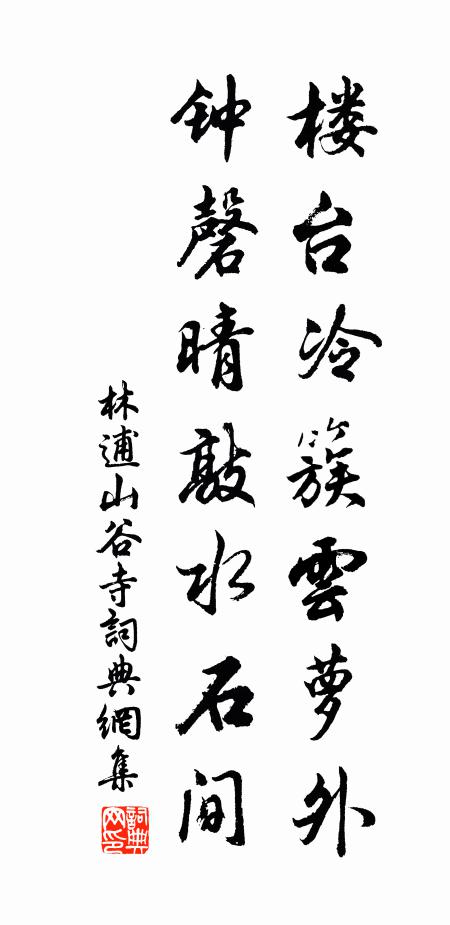 楼台冷簇雲萝外
钟磬晴敲水石间
林逋山谷寺詞典網集
詞典网印